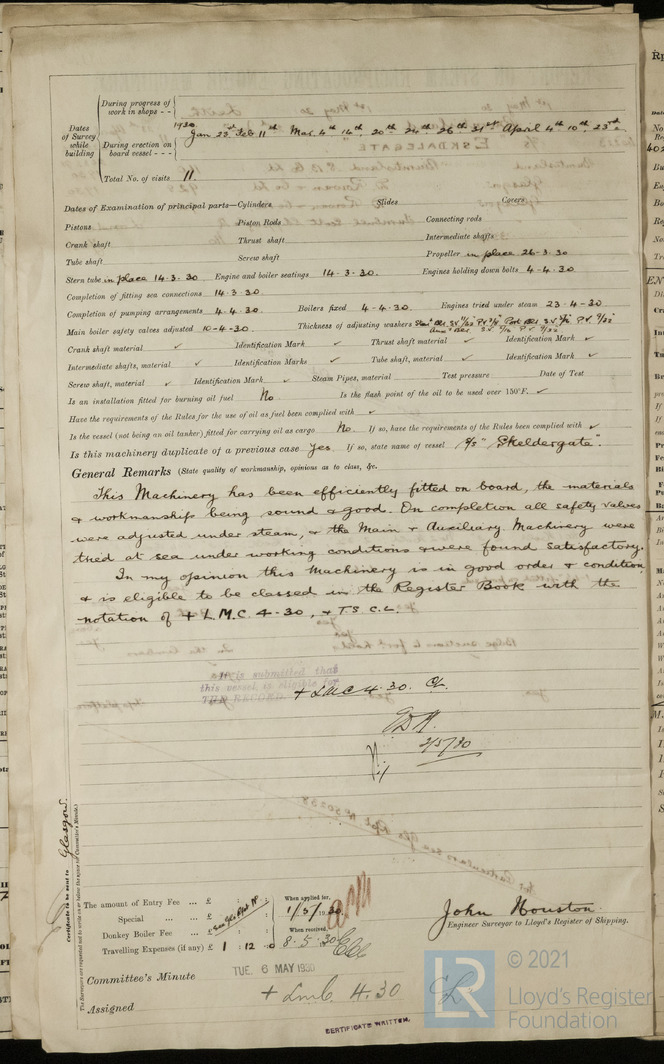 Dates of Survey while building
During progress of work in shops - -
During erection on board vessel - - -
1930 Jan 23rd Feb 11th Mar 4th 14th 20th 24th 26th 31st April 4th 10th 23rd
Total No. of visits 11
Dates of Examination of principal parts—Cylinders Slides Covers
Pistons Piston Rods Connecting rods
Crank shaft Thrust shaft Intermediate shafts
Tube shaft Screw shaft Propeller in place 26-3-30
Stern tube in place 14-3-30 Engine and boiler seatings 14-3-30. Engines holding down bolts 4-4-30
Completion of fitting sea connections 14-3-30
Completion of pumping arrangements 4-4-30. Boilers fixed 4-4-30. Engines tried under steam 23-4-30
Main boiler safety valves adjusted 10-4-30. Thickness of adjusting washers
Crank shaft material ✓ Identification Mark ✓ Thrust shaft material ✓ Identification Mark ✓
Intermediate shafts, material ✓ Identification Marks ✓ Tube shaft, material ✓ Identification Mark ✓
Screw shaft, material ✓ Identification Mark ✓ Steam Pipes, material Test pressure Date of Test
Is an installation fitted for burning oil fuel No. Is the flash point of the oil to be used over 150°F. ✓
Have the requirements of the Rules for the use of oil as fuel been complied with ✓
Is the vessel (not being an oil tanker) fitted for carrying oil as cargo No. If so, have the requirements of the Rules been complied with ✓
Is this machinery duplicate of a previous case Yes If so, state name of vessel S/S "Skeldergate".
General Remarks (State quality of workmanship, opinions as to class, &c.
This Machinery has been efficiently fitted on board, the materials
& workmanship being sound & good. On completion all safety valves
were adjusted under steam, & the Main & Auxiliary Machinery were
tried at sea under working conditions & were found satisfactory.
In my opinion this Machinery is in good order & condition
& is eligible to be classed in the Register Book with the
notation of + L.M.C. 4-30, & T.S. C.L.
It is submitted that
this vessel is eligible for
THE RECORD. + LMC 4.30. CL.
2/5/30
Certificate to be sent to Glasgow.
The Surveyors are requested not to write on or below the space for Committee's Minute.
The amount of Entry Fee ... £ : : When applied for,
Special ... ... £ 1/5/1930
Donkey Boiler Fee ... £ When received,
Travelling Expenses (if any) £ 1 : 12 : 0 8.5.30
John Houston.
Engineer Surveyor to Lloyd's Register of Shipping.
Committee's Minute TUE. 6 MAY 1930
Assigned + LMC 4.30 CL
CERTIFICATE WRITTEN.
LR
© 2021
Lloyd's Register
Foundation